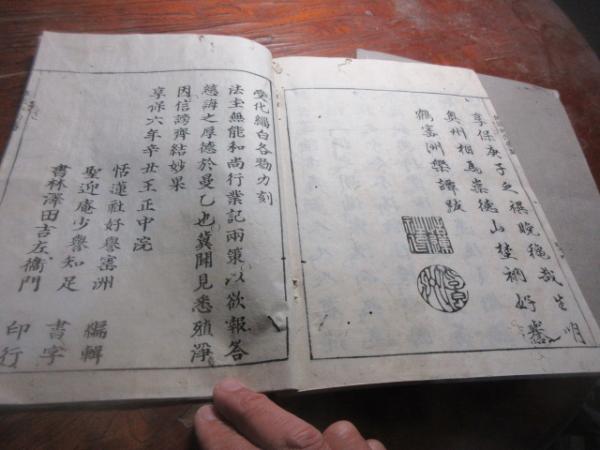 享保庚子之禩晩穐哉生明
奥州相馬崇德山埜衲好譽
寉窩洲欒譚跋
受化緇白各勠力刻
法主無能和尚行業記兩策以欲報荅
慈誨之厚德於曼乙也冀聞見悉殖淨
因信謗齊結妙果
享保六年辛丑王正中浣
恬蓮社好譽窩洲 編輯
聖迎庵少譽知足 書字
書林澤田吉左衞門 印行